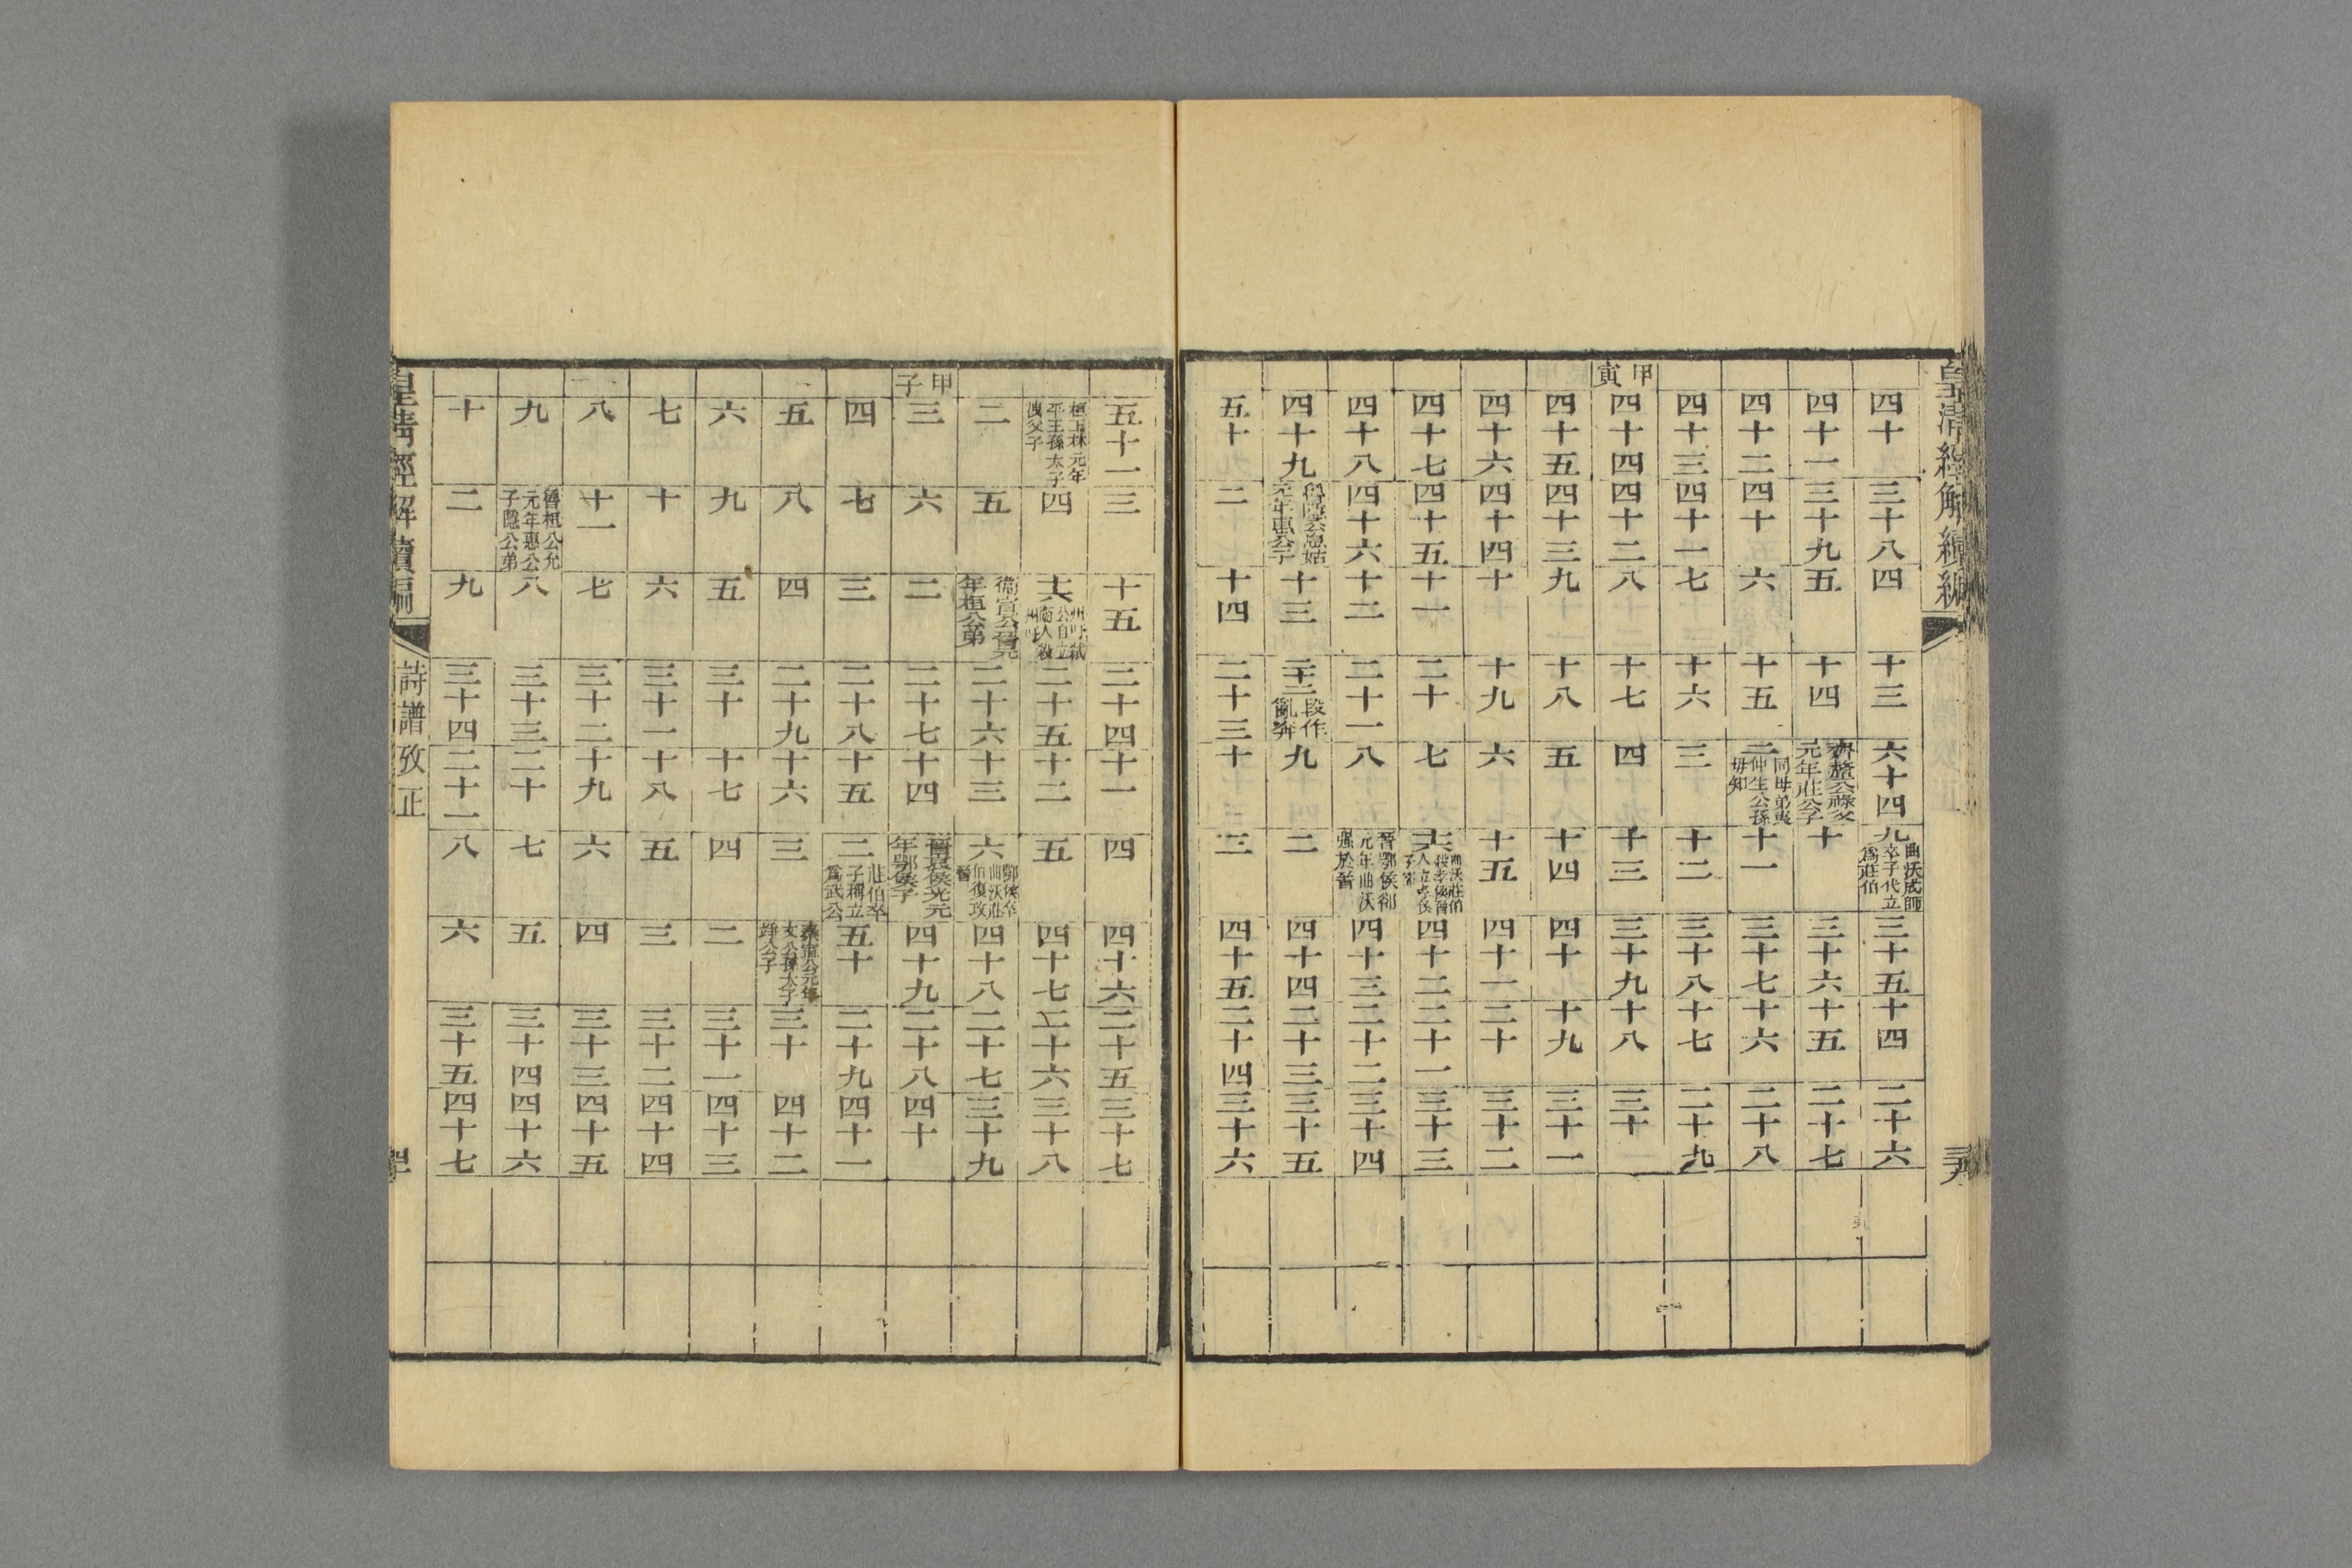 皇清經解續編
四十 三十八 四 十三 六十四 九曲沃成師卒子代立爲莊伯 三十五 十四 二十六
四十一 三十九 五 十四 齊釐公祿父元年莊公子 十 三十六 十五 二十七
四十二 四十 六 十五 二同母弟夷仲生公孫毋知 十一 三十七 十六 二十八
四十三 四十一 七 十六 三 十二 三十八 十七 二十九
甲寅 四十四 四十二 八 十七 四 十三 三十九 十八 三十
四十五 四十三 九 十八 五 十四 四十 十九 三十一
四十六 四十四 十 十九 六 十五 四十一 二十 三十二
四十七 四十五 十一 二十 七 十六曲沃莊伯殺孝侯晉人立孝侯子 四十二 二十一 三十三
四十八 四十六 十二 二十一 八 晉鄂侯郤元年曲沃強於晉 四十三 二十二 三十四
四十九 魯隱公息姑元年惠公子 十三 二十二段作亂奔 九 二 四十四 二十三 三十五
五十 二 十四 二十三 十 三 四十五 二十四 三十六
五十一 三 十五 二十四 十一 四 四十六 二十五 三十七
桓王林元年平王孫太子洩父子 四 十六州吁弑公自立衞人殺州吁 二十五 十二 五 四十七 二十六 三十八
二 五 衞宣公晉元年桓公弟 二十六 十三 六鄂侯卒曲沃莊伯復攻晉 四十八 二十七 三十九
甲子 三 六 二 二十七 十四 晉哀侯光元年鄂侯子 四十九 二十八 四十
四 七 三 二十八 十五 二莊伯卒子稱立爲武公 五十 二十九 四十一
五 八 四 二十九 十六 三 秦寧公元年文公孫太子竫公子 三十 四十二
六 九 五 三十 十七 四 二 三十一 四十三
七 十 六 三十一 十八 五 三 三十二 四十四
八 十一 七 三十二 十九 六 四 三十三 四十五
九 魯桓公允元年惠公子隱公弟 八 三十三 二十 七 五 三十四 四十六
十 二 九 三十四 二十一 八 六 三十五 四十七
皇清經解續編 詩譜攷正